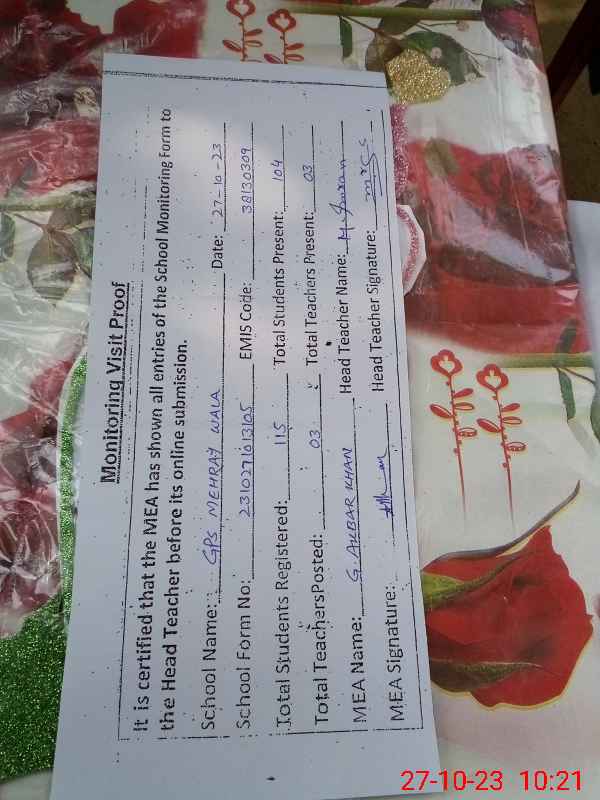 Monitoring Visit Proof
It is certified that the MEA has shown all entries of the School Monitoring Form to
the Head Teacher before its online submission.
School Name: GPS MEHRAY WALA Date: 27-10-23
School Form No: 231027013105 EMIS Code: 38130309
Total Students Registered: 115 Total Students Present: 104
Total TeachersPosted: 03 Total Teachers Present: 03
MEA Name: G. AKBAR KHAN Head Teacher Name: M. Imran
MEA Signature: Head Teacher Signature:
27-10-23 10:21